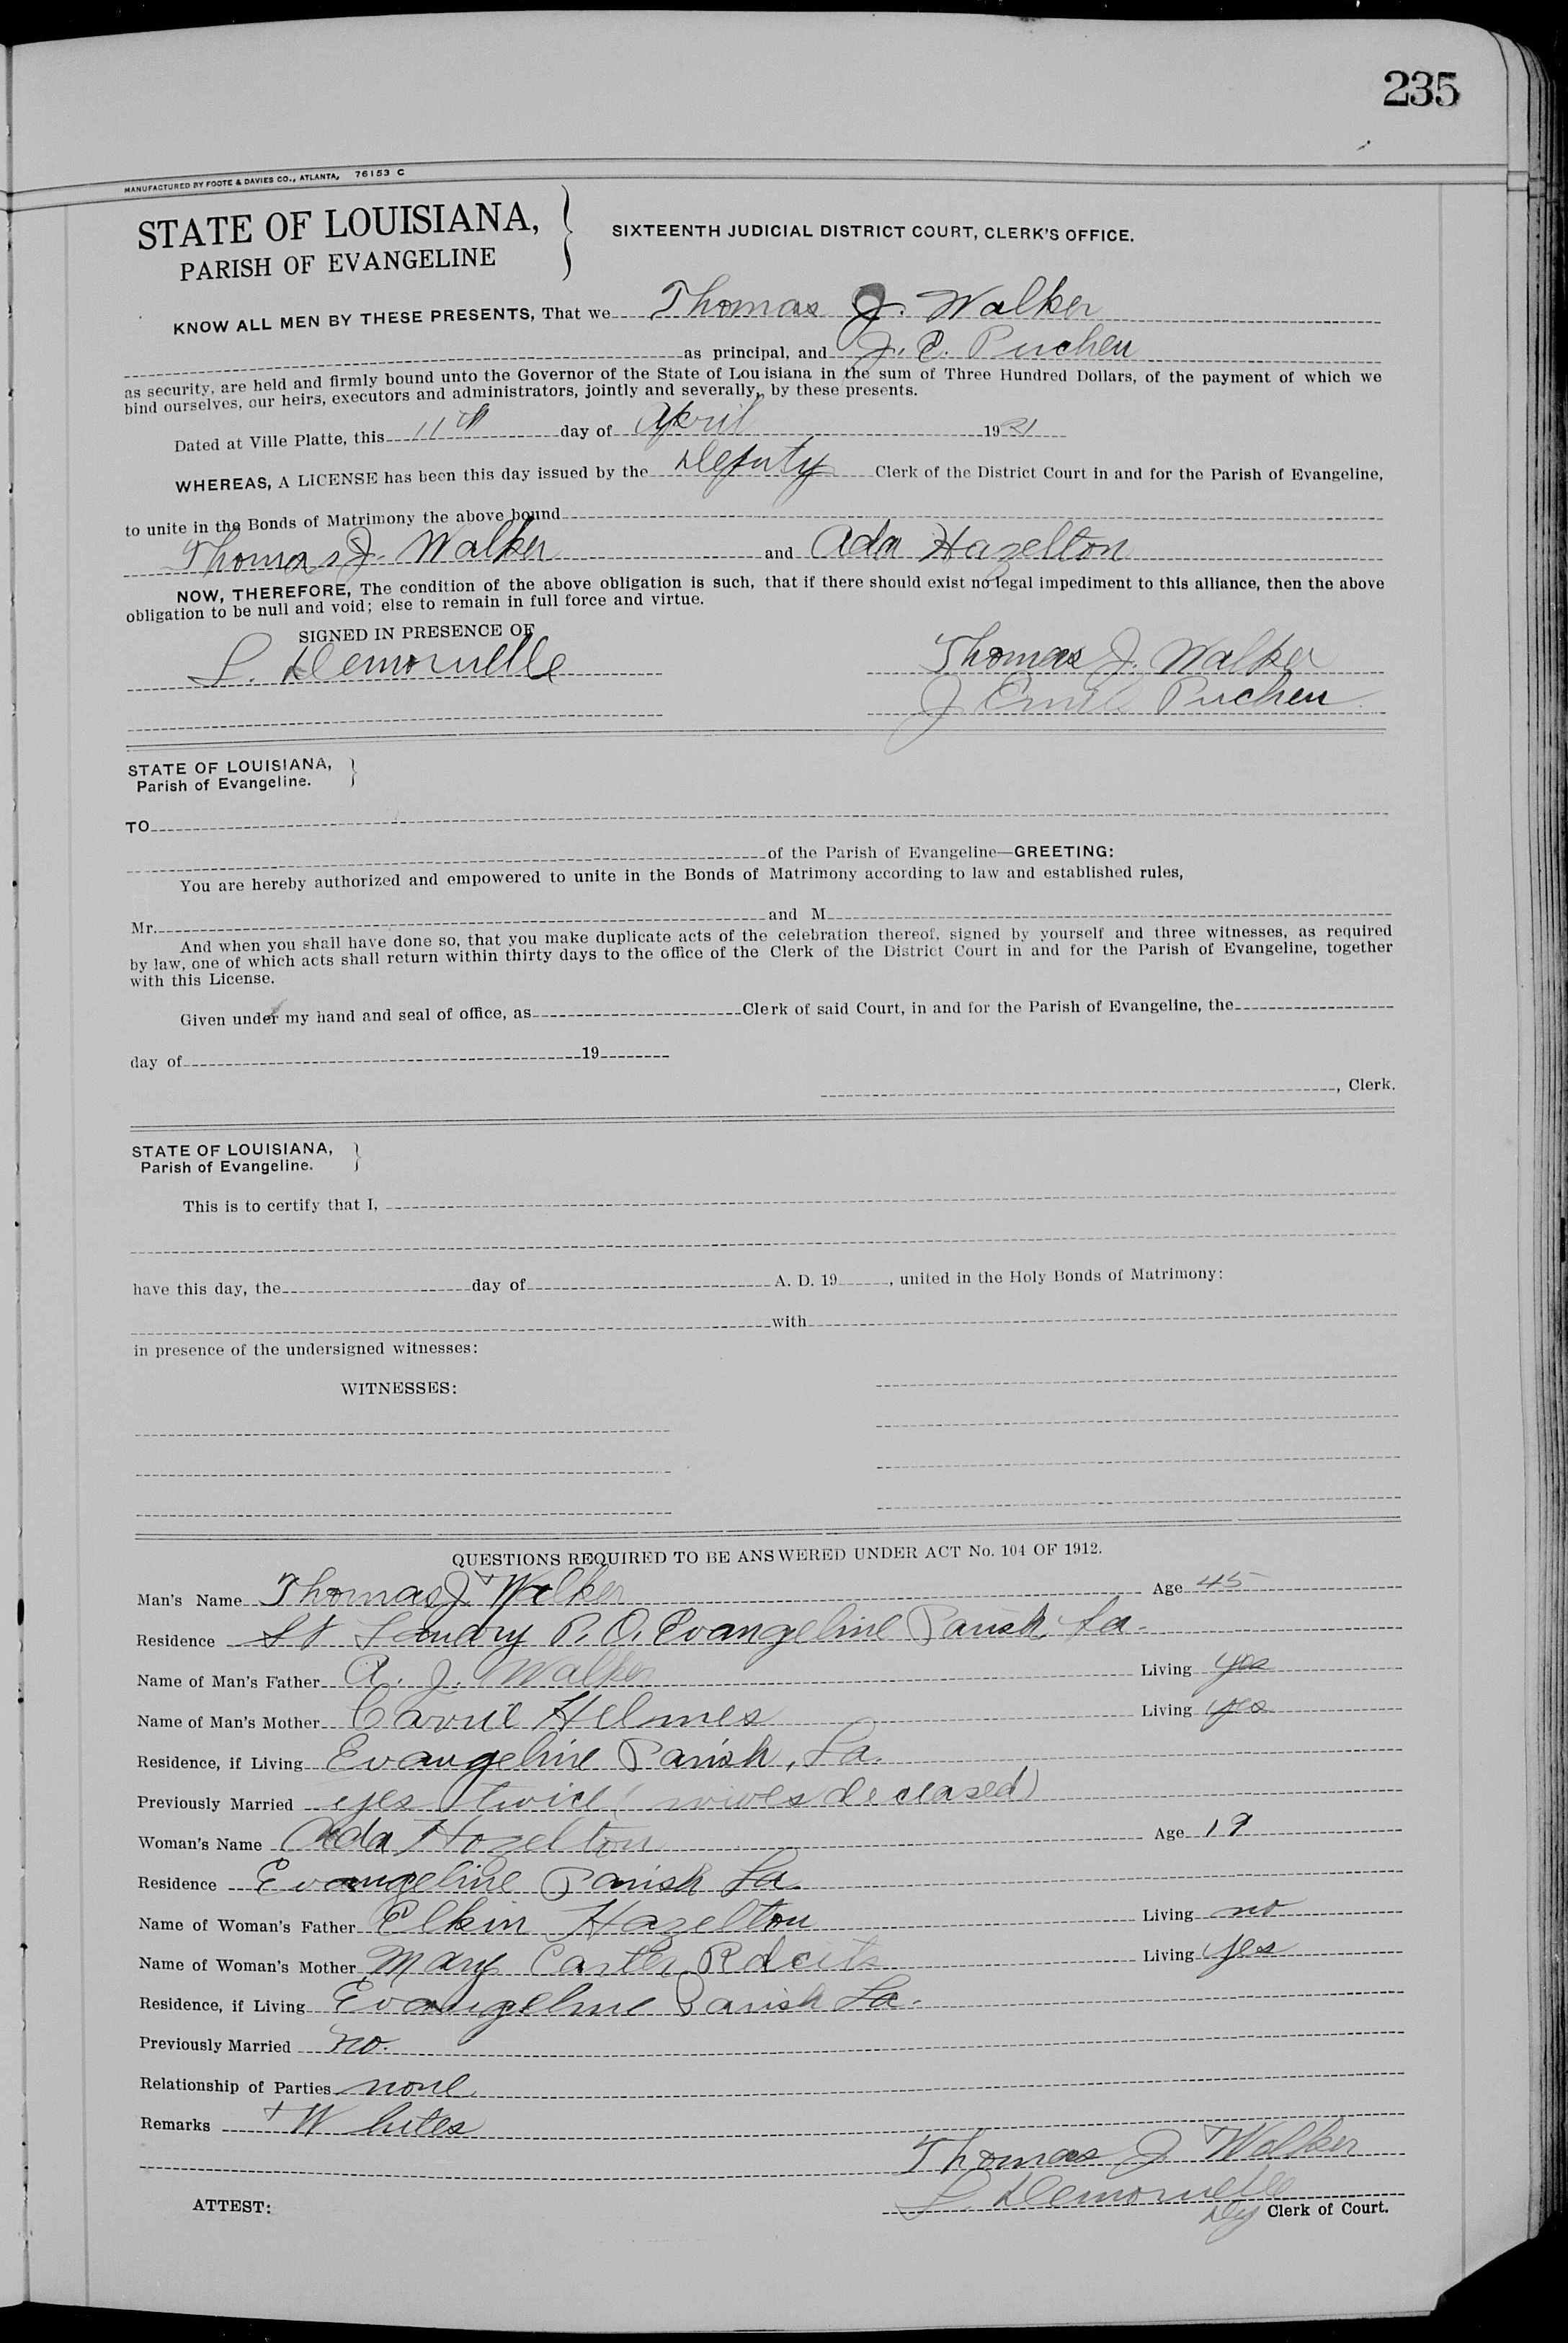 235
MANUFACTURED BY FOOTE & DAVIES CO., ATLANTA, 76153 C
STATE OF LOUISIANA,
PARISH OF EVANGELINE
SIXTEENTH JUDICIAL DISTRICT COURT, CLERK'S OFFICE.
KNOW ALL MEN BY THESE PRESENTS, That we Thomas J. Walker
as principal, and J. E. Pucheu
as security, are held and firmly bound unto the Governor of the State of Louisiana in the sum of Three Hundred Dollars, of the payment of which we
bind ourselves, our heirs, executors and administrators, jointly and severally, by these presents.
Dated at Ville Platte, this 11th day of April 1921
WHEREAS, A LICENSE has been this day issued by the Deputy Clerk of the District Court in and for the Parish of Evangeline,
to unite in the Bonds of Matrimony the above bound
Thomas J. Walker and Ada Hazelton
NOW, THEREFORE, The condition of the above obligation is such, that if there should exist no legal impediment to this alliance, then the above
obligation to be null and void; else to remain in full force and virtue.
SIGNED IN PRESENCE OF
L. Demoruelle Thomas J. Walker
J Emile Pucheu
STATE OF LOUISIANA,
Parish of Evangeline.
TO
of the Parish of Evangeline—GREETING:
You are hereby authorized and empowered to unite in the Bonds of Matrimony according to law and established rules,
Mr. and M
And when you shall have done so, that you make duplicate acts of the celebration thereof, signed by yourself and three witnesses, as required
by law, one of which acts shall return within thirty days to the office of the Clerk of the District Court in and for the Parish of Evangeline, together
with this License.
Given under my hand and seal of office, as Clerk of said Court, in and for the Parish of Evangeline, the
day of 19
, Clerk.
STATE OF LOUISIANA,
Parish of Evangeline.
This is to certify that I,
have this day, the day of A. D. 19 , united in the Holy Bonds of Matrimony:
with
in presence of the undersigned witnesses:
WITNESSES:
QUESTIONS REQUIRED TO BE ANSWERED UNDER ACT No. 104 OF 1912.
Man's Name Thomas J Walker Age 45
Residence St Landry P. O. Evangeline Parish, La.
Name of Man's Father A. J. Walker Living yes
Name of Man's Mother Carrie Helmes Living yes
Residence, if Living Evangeline Parish, La.
Previously Married yes twice (wives deceased)
Woman's Name Ada Hazelton Age 19
Residence Evangeline Parish La.
Name of Woman's Father Elkin Hazelton Living no
Name of Woman's Mother Mary Carter Living yes
Residence, if Living Evangeline Parish La.
Previously Married no.
Relationship of Parties none
Remarks Whites
Thomas J Walker
L. Demoruelle
ATTEST: Dy Clerk of Court.